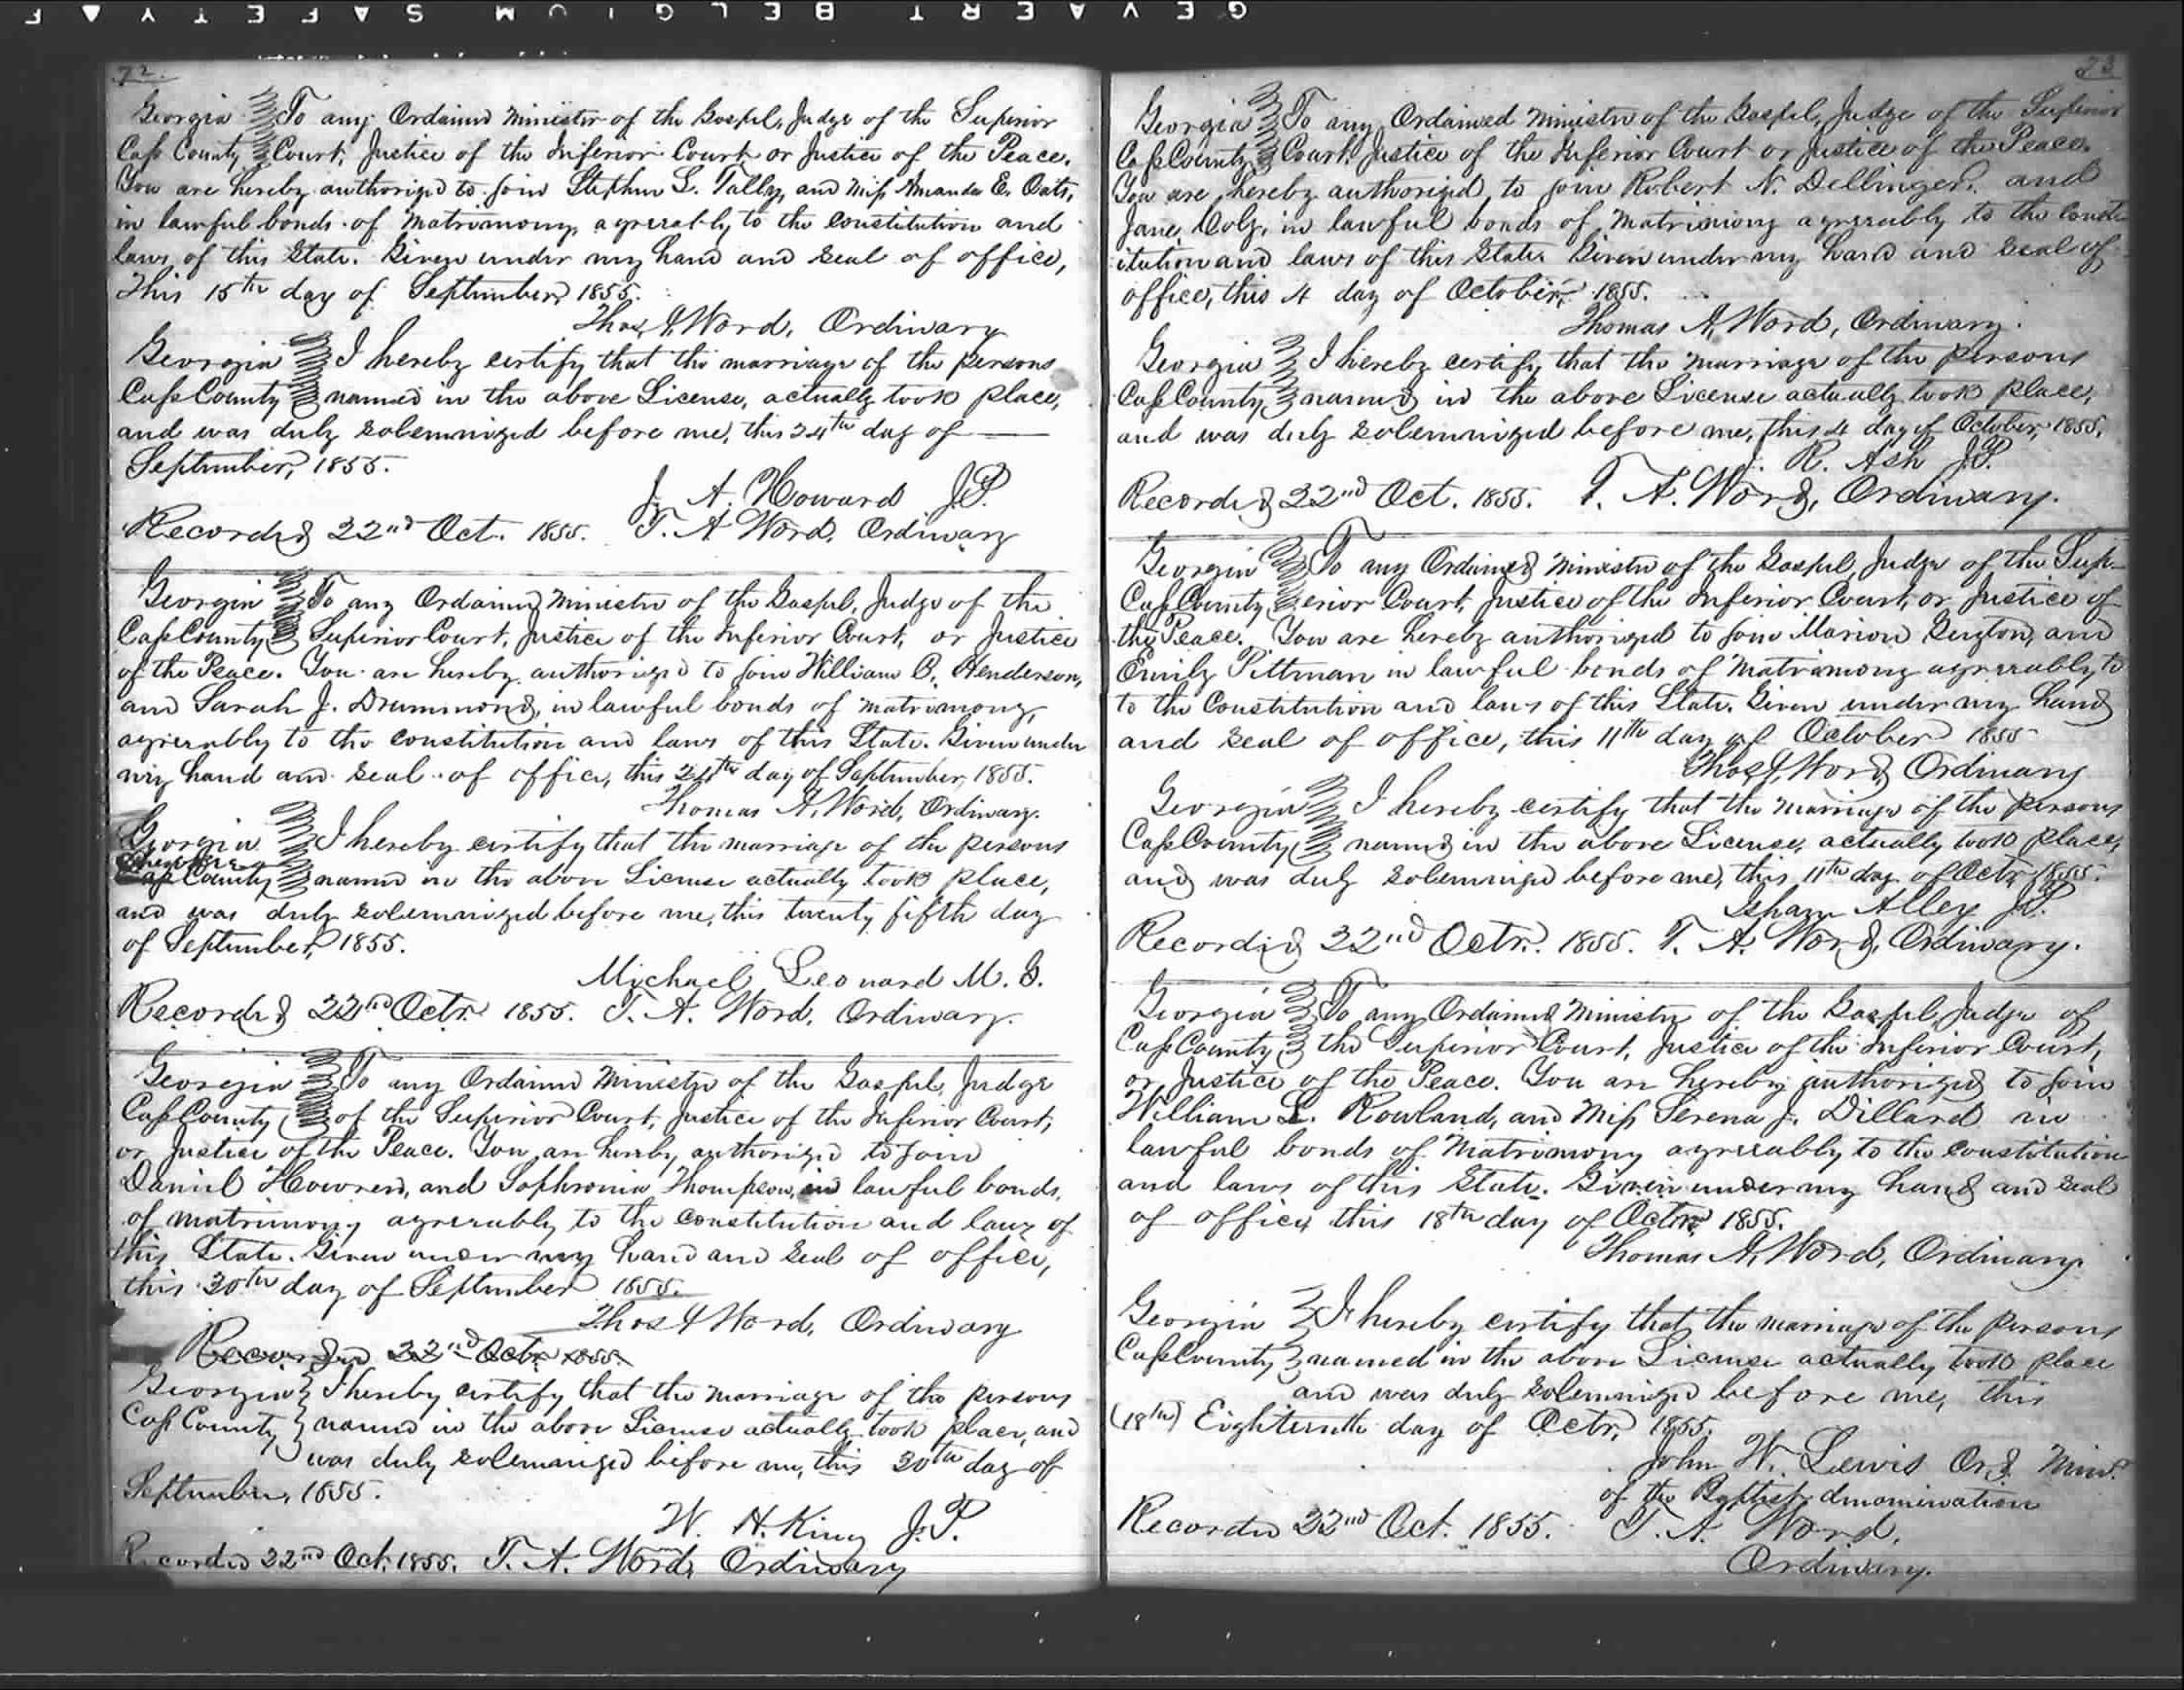 GEVAERT BELGIUM SAFETY F
72.
Georgia To any Ordained Minister of the Gospel, Judge of the Superior
Cass County Court, Justice of the Inferior Court or Justice of the Peace.
You are hereby authorized to join Stephen S. Tally, and Miss Amanda E. Oats,
in lawful bonds of Matrimony, agreeably to the constitution and
laws of this State. Given under my hand and seal of office,
This 15th day of September, 1855.
Thos. A. Word, Ordinary
Georgia I hereby certify that the marriage of the persons
Cass County named in the above License, actually took place,
and was duly solemnized before me, this 24th day of
September, 1855.
J. A. Howard J.P.
Recorded 22nd Oct. 1855. T. A. Word, Ordinary
Georgia To any Ordained Minister of the Gospel, Judge of the
Cass County Superior Court, Justice of the Inferior Court, or Justice
of the Peace. You are hereby authorized to join William B. Henderson,
and Sarah J. Drummond, in lawful bonds of matrimony,
agreeably to the constitution and laws of this State. Given under
my hand and seal of office, this 24th day of September, 1855.
Thomas A. Word, Ordinary.
Georgia I hereby certify that the marriage of the persons
Cherokee
Cass County named in the above License actually took place,
and was duly solemnized before me, this twenty fifth day
of September, 1855.
Michael Leonard M. G.
Recorded 22nd Octr. 1855. T. A. Word, Ordinary.
Georgia To any Ordained Minister of the Gospel, Judge
Cass County of the Superior Court, Justice of the Inferior Court,
or Justice of the Peace. You are hereby authorized to join
Daniel Howren, and Sophronia Thompson, in lawful bonds,
of matrimony agreeably to the constitution and laws of
this State. Given under my hand and seal of office,
this 30th day of September 1855.
Thos A Word, Ordinary
Recorded 22nd Octr. 1855.
Georgia I hereby certify that the marriage of the persons
Cass County named in the above License actually took place, and
was duly solemnized before me, this 30th day of
September, 1855.
W. H. King J.P.
Recorded 22nd Oct. 1855. T. A. Word, Ordinary
23
Georgia To any Ordained Minister of the Gospel, Judge of the Superior
Cass County Court, Justice of the Inferior Court or Justice of the Peace.
You are hereby authorized, to join Robert N. Dellinger, and
Jane Coly, in lawful bonds of Matrimony agreeably to the const-
itution and laws of this State. Given under my hand and seal of
office, this 4 day of October, 1855.
Thomas A. Word, Ordinary.
Georgia I hereby certify that the marriage of the persons
Cass County named in the above License actually took place,
and was duly solemnized before me, this 4 day of October, 1855.
J. R. Ash J.P.
Recorded 22nd Oct. 1855. T. A. Word, Ordinary.
Georgia To any Ordained Minister of the Gospel, Judge of the Sup-
Cass County erior Court, Justice of the Inferior Court, or Justice of
the Peace. You are hereby authorized to join Marion Guyton, and
Emily Pittman in lawful bonds of Matrimony agreeably to
to the Constitution and laws of this State. Given under my hand
and seal of office, this 11th day of October 1855
Thos A. Word, Ordinary
Georgia I hereby certify that the marriage of the persons
Cass County named in the above License, actually took place,
and was duly solemnized before me, this 11th day of Octr, 1855.
Isham Alley J.P.
Recorded 22nd Octr. 1855. T. A. Word, Ordinary.
Georgia To any Ordained Minister of the Gospel, Judge of
Cass County the Superior Court, Justice of the Inferior Court,
or Justice of the Peace. You are hereby authorized to join
William L. Rowland, and Miss Serena J. Dillard in
lawful bonds of Matrimony agreeably to the constitution
and laws of this State. Given under my hand and seal
of office, this 18th day of Octr. 1855.
Thomas A. Word, Ordinary
Georgia I hereby certify that the marriage of the persons
Cass County named in the above License actually took place
and was duly solemnized before me, this
(18th) Eighteenth day of Octr, 1855.
John W. Lewis Ord. Min.
of the Baptist denomination
Recorded 22nd Oct. 1855. T. A. Word,
Ordinary.